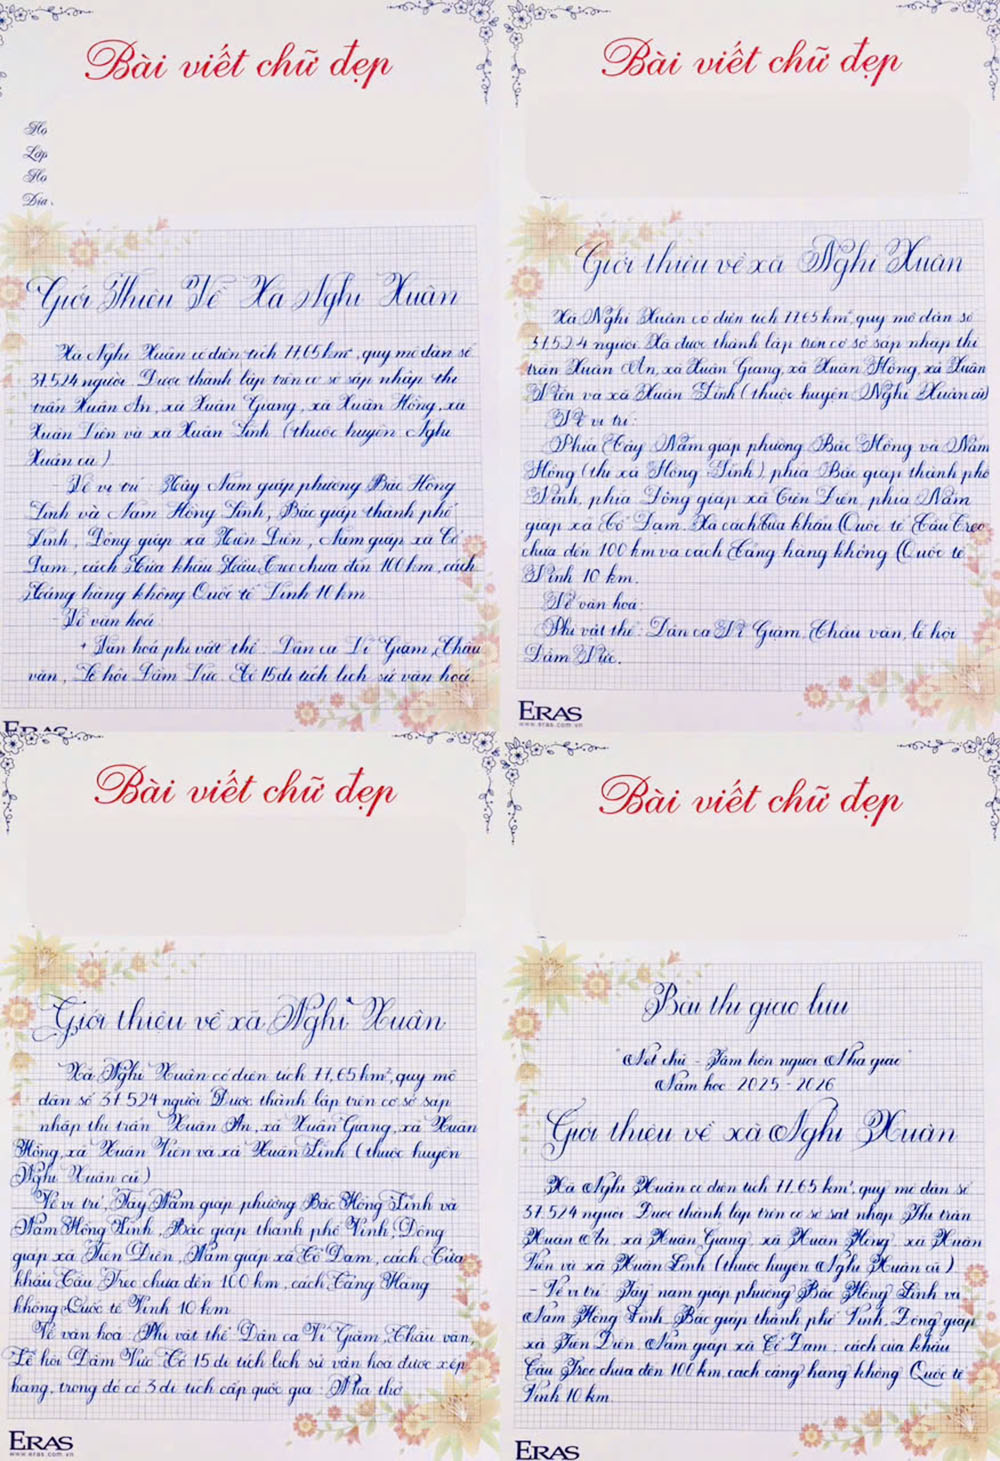 Bài viết chữ đẹp
Họ
Lớp
Họ
Địa
Giới Thiệu Về Xã Nghi Xuân
Xã Nghi Xuân có diện tích 77,65 km², quy mô dân số
37.524 người. Được thành lập trên cơ sở sáp nhập thị
trấn Xuân An, xã Xuân Giang, xã Xuân Hồng, xã
Xuân Viên và xã Xuân Lĩnh (thuộc huyện Nghi
Xuân cũ).
Về vị trí: Tây Nam giáp phường Bắc Hồng
Lĩnh và Nam Hồng Lĩnh, Bắc giáp thành phố
Vinh, Đông giáp xã Tiên Điền, Nam giáp xã Cổ
Đạm, cách Cửa khẩu Cầu Treo chưa đến 100 km, cách
Cảng hàng không Quốc tế Vinh 10 km.
- Về văn hoá
+ Văn hoá phi vật thể: Dân ca Ví Giặm, Chầu
văn, Lễ hội Đầm Vực. Có 15 di tích lịch sử văn hoá.
ERAS
Bài viết chữ đẹp
Giới thiệu về xã Nghi Xuân
Xã Nghi Xuân có diện tích 77,65 km², quy mô dân số
37.524 người. Xã được thành lập trên cơ sở sáp nhập thị
trấn Xuân An, xã Xuân Giang, xã Xuân Hồng, xã Xuân
Viên và xã Xuân Lĩnh (thuộc huyện Nghi Xuân cũ)
Về vị trí:
Phía Tây Nam giáp phường Bắc Hồng và Nam
Hồng (thị xã Hồng Lĩnh), phía Bắc giáp thành phố
Vinh, phía Đông giáp xã Tiên Điền, phía Nam
giáp xã Cổ Đạm. Xã cách Cửa khẩu Quốc tế Cầu Treo
chưa đến 100 km và cách Cảng hàng không Quốc tế
Vinh 10 km.
Về văn hoá:
Phi vật thể: Dân ca Ví Giặm, Chầu văn, lễ hội
Đầm Vực.
ERAS
www.eras.com.vn
Bài viết chữ đẹp
Giới thiệu về xã Nghi Xuân
Xã Nghi Xuân có diện tích 77,65 km², quy mô
dân số 37.524 người. Được thành lập trên cơ sở sáp
nhập thị trấn Xuân An, xã Xuân Giang, xã Xuân
Hồng, xã Xuân Viên và xã Xuân Lĩnh (thuộc huyện
Nghi Xuân cũ)
Về vị trí, Tây Nam giáp phường Bắc Hồng Lĩnh và
Nam Hồng Lĩnh, Bắc giáp thành phố Vinh, Đông
giáp xã Tiên Điền, Nam giáp xã Cổ Đạm, cách Cửa
khẩu Cầu Treo chưa đến 100 km, cách Cảng Hàng
không Quốc tế Vinh 10 km
Về văn hoá: Phi vật thể Dân ca Ví Giặm, Chầu văn,
Lễ hội Đầm Vực. Có 15 di tích lịch sử văn hoá được xếp
hạng, trong đó có 3 di tích cấp quốc gia: Nhà thờ
ERAS
www.eras.com.vn
Bài viết chữ đẹp
Bài thi giao lưu
"Nét chữ - Tâm hồn người Nhà giáo"
Năm học 2025 - 2026
Giới thiệu về xã Nghi Xuân
Xã Nghi Xuân có diện tích 77,65 km², quy mô dân số
37.524 người. Được thành lập trên cơ sở sát nhập Thị trấn
Xuân An, xã Xuân Giang, xã Xuân Hồng, xã Xuân
Viên và xã Xuân Lĩnh (thuộc huyện Nghi Xuân cũ)
- Về vị trí: Tây nam giáp phường Bắc Hồng Lĩnh và
Nam Hồng Lĩnh, Bắc giáp thành phố Vinh, Đông giáp
xã Tiên Điền, Nam giáp xã Cổ Đạm; cách cửa khẩu
Cầu Treo chưa đến 100 km, cách cảng hàng không Quốc tế
Vinh 10 km.
ERAS